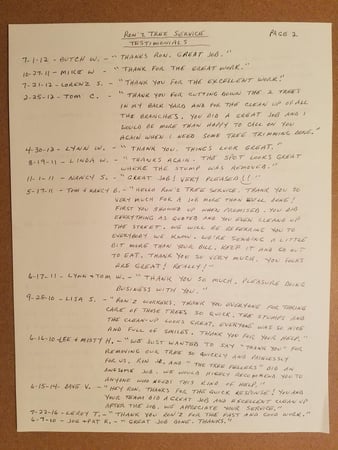 RON'S TREE SERVICE PAGE 2
TESTIMONIALS
7-1-12 - BUTCH W. - "THANKS RON. GREAT JOB."
10-27-11 - MIKE W - "THANK FOR THE GREAT WORK."
7-21-12 - LORENZ S. - "THANK YOU FOR THE EXCELLENT WORK!
2-25-12 - TOM C. - "THANK YOU FOR CUTTING DOWN THE 2 TREES
IN MY BACK YARD AND FOR THE CLEAN UP OF ALL
THE BRANCHES. YOU DID A GREAT JOB AND I
WOULD BE MORE THAN HAPPY TO CALL ON YOU
AGAIN WHEN I NEED SOME TREE TRIMMING DONE."
4-30-12 - LYNN W. - "THANK YOU. THINGS LOOK GREAT."
8-19-11 - LINDA W. - "THANKS AGAIN. THE SPOT LOOKS GREAT
WHERE THE STUMP WAS REMOVED."
11-1-11 - NANCY S. - "GREAT JOB! VERY PLEASED!!"
5-17-11 - TOM & NANCY B. - "HELLO RON'S TREE SERVICE. THANK YOU SO
VERY MUCH FOR A JOB MORE THAN WELL DONE!
FIRST YOU SHOWED UP WHEN PROMISED. YOU DID
EVERYTHING AS QUOTED AND YOU EVEN CLEANED UP
THE STREET. WE WILL BE REFERRING YOU TO
EVERYBODY WE KNOW. WE'RE SENDING A LITTLE
BIT MORE THAN YOUR BILL. KEEP IT AND GO OUT
TO EAT. THANK YOU SO VERY MUCH. YOU FOLKS
ARE GREAT! REALLY!"
6-17-11 - LYNN & TOM W. - "THANK YOU SO MUCH. PLEASURE DOING
BUSINESS WITH YOU."
9-25-10 - LISA S. - "RON'Z WORKERS. THANK YOU EVERYONE FOR TAKING
CARE OF THESE TREES SO QUICK. THE STUMPS AND
THE CLEAN-UP LOOKS GREAT. EVERYONE WAS SO NICE
AND FULL OF SMILES. THANK YOU FOR YOUR HELP."
6-16-10 LEE & MISTY H. - "WE JUST WANTED TO SAY "THANK YOU" FOR
REMOVING OUR TREE SO QUICKLY AND PAINLESSLY
FOR US. RON JR. AND "THE TREE FELLERS" DID AN
AWESOME JOB. WE WOULD HIGHLY RECOMMEND YOU TO
ANYONE WHO NEEDS THIS KIND OF HELP."
6-15-14 - DAVE V. - "HEY RON. THANKS FOR THE QUICK RESPONSE! YOU AND
YOUR TEAM DID A GREAT JOB AND EXCELLENT CLEAN UP
AFTER THE JOB. WE APPRECIATE YOUR SERVICE."
7-22-16 - LEROY T. - "THANK YOU RON'Z FOR THE FAST AND GOOD WORK."
6-7-10 - JOE & PAT R. - "GREAT JOB DONE. THANKS."